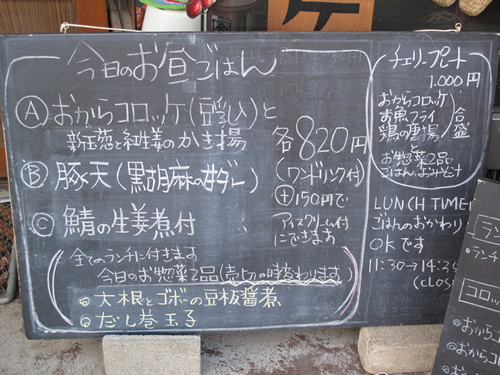 今日のお昼ごはん
Ⓐ おからコロッケ(豆乳入)と
新玉葱と紅生姜のかき揚
Ⓑ 豚天(黒胡麻の甘ダレー)
Ⓒ 鯖の生姜煮付
各820円
(ワンドリンク付)
⊕150円で
アイスクリーム付
にできます
全てのランチに付きます
今日のお惣菜2品(売切の時変わります)
大根とゴボーの豆板醤煮
だし巻玉子
チェリープレート
1.000円
おからコロッケ
お魚フライ
鶏の唐揚
合盛
と
お惣菜2品
ごはん、おみそ汁
LUNCH TIME
ごはんのおかわり
OKです
11:30→14:30
(close
ランチ
コロッ
おから
おからコ